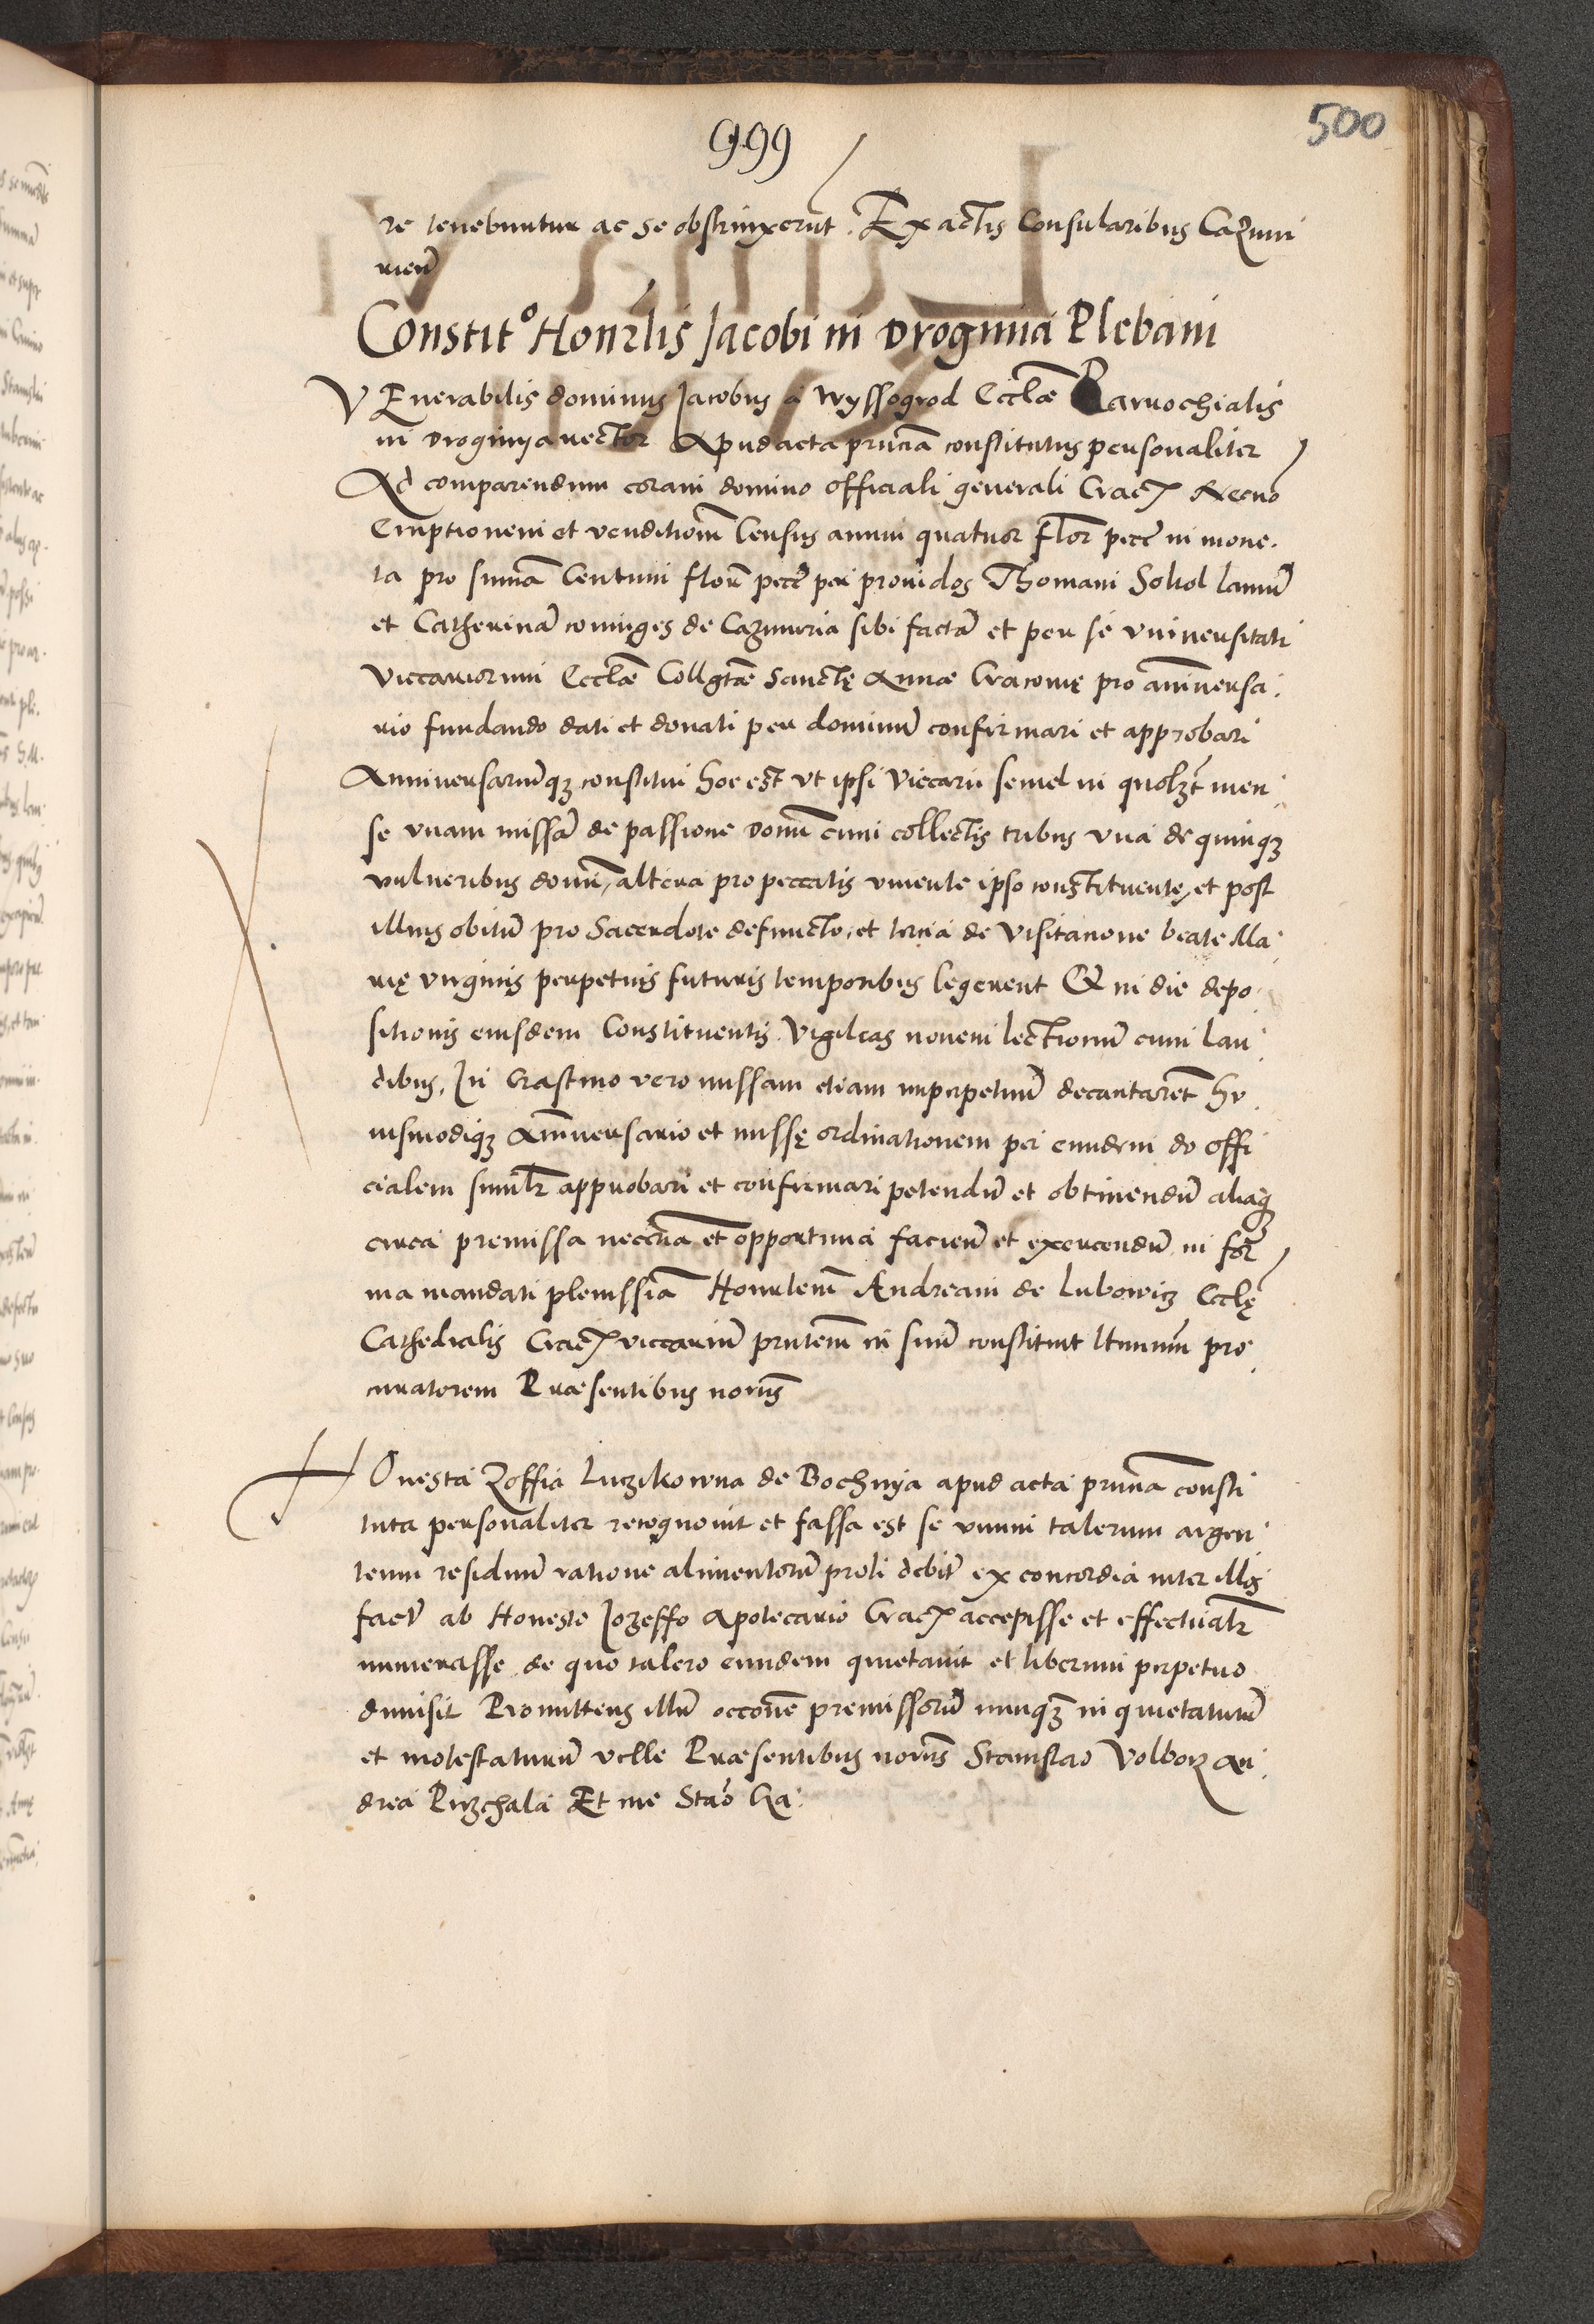 999
500
re tenebuntur ac se obstrinxerūt. Ex actis Consularibus Cazimi
rien̄
Constitº Honrlis Jacobi in Droginia Plebani
VEnerabilis dominus Jacobus a Wyssogrod Ecclæ Parrochialis
in Droginya rector Apud acta prn̄cia constitutus personaliter
Ad comparendum coram domino officiali generali Crac̄
Emptionem et venditionē Census annui quatuor flor pecc̄ in mone
ta pro summa Centum flor̄ pecc̄ per prouidos Thomam Soltol
et Catherinā coniuges de Cazimiria sibi factā et per se vniuersitati
Viccariorum Ecclæ Collgtæ Sanctę Annæ Cracouię pro anniuersa
rio fundando dati et donati per dominū confirmari et approbari
Anniuersariūqȝ constitui hoc est vt ipsi Viccarii semel in quolȝt men
se vnam missā de passione domī cum collectis tribus vna de quinqȝ
vulneribus domī, altera pro peccatis viuente ipso constituente, et post
illius obitū pro Sacerdote defuncto, et tercia de Visitacione beate Ma
rię virginis perpetuis futuris temporibus legerent Et in die depo
sitionis eiusdem Constituentis Vigilias nouem lectionū cum lau
dibus, In Crastino vero missam etiam imperpetuū decantarēt hu
iusmodiqȝ Anniuersario et missę ordinationem per eundem do offi
cialem similr approbari et confirmari petendū et obtinendū aliaqȝ
circa premissa neccria et opportuna faciēn et exercendū in for
ma mandati plenissīa Honrlem Andream de Lubowicz Ecclę
Cathedralis Crac̄ viccariū prn̄tem in suū constituit ltimum pro
curatorem Præsentibus noriīs
HOnesta Zoffia Luczikowna de Bochnya apud acta prn̄cia consti
tuta personaliter recognouit et fassa est se vnum talerum argen
teum residuū ratione alimentorū proli debit ex concordia inter illos
fact̄ ab Honesto Jozeffo Apotecario Crac̄ accepisse et effectualr
numerasse de quo talero eundem quietauit et liberum perpetuo
dimisit Promittens illū occone premissorū nunqȝ inquietaturū
et molestaturū velle Præsentibus noriīs Stanislao Volborz An
drea Puzchala Et me Stāo Ka